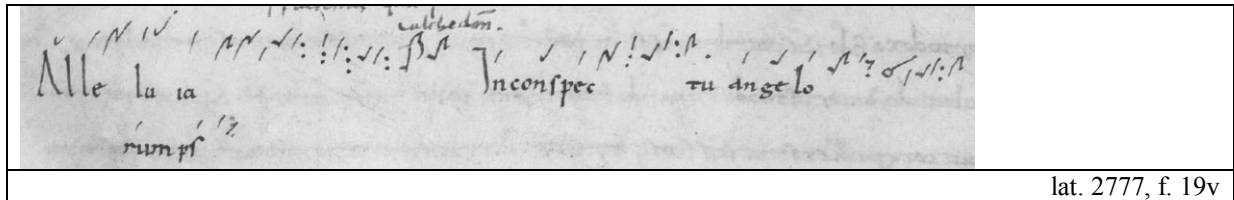 calchedon̄.
Alle lu ia Inconspec tu angelo
rum ps̄
lat. 2777, f. 19v